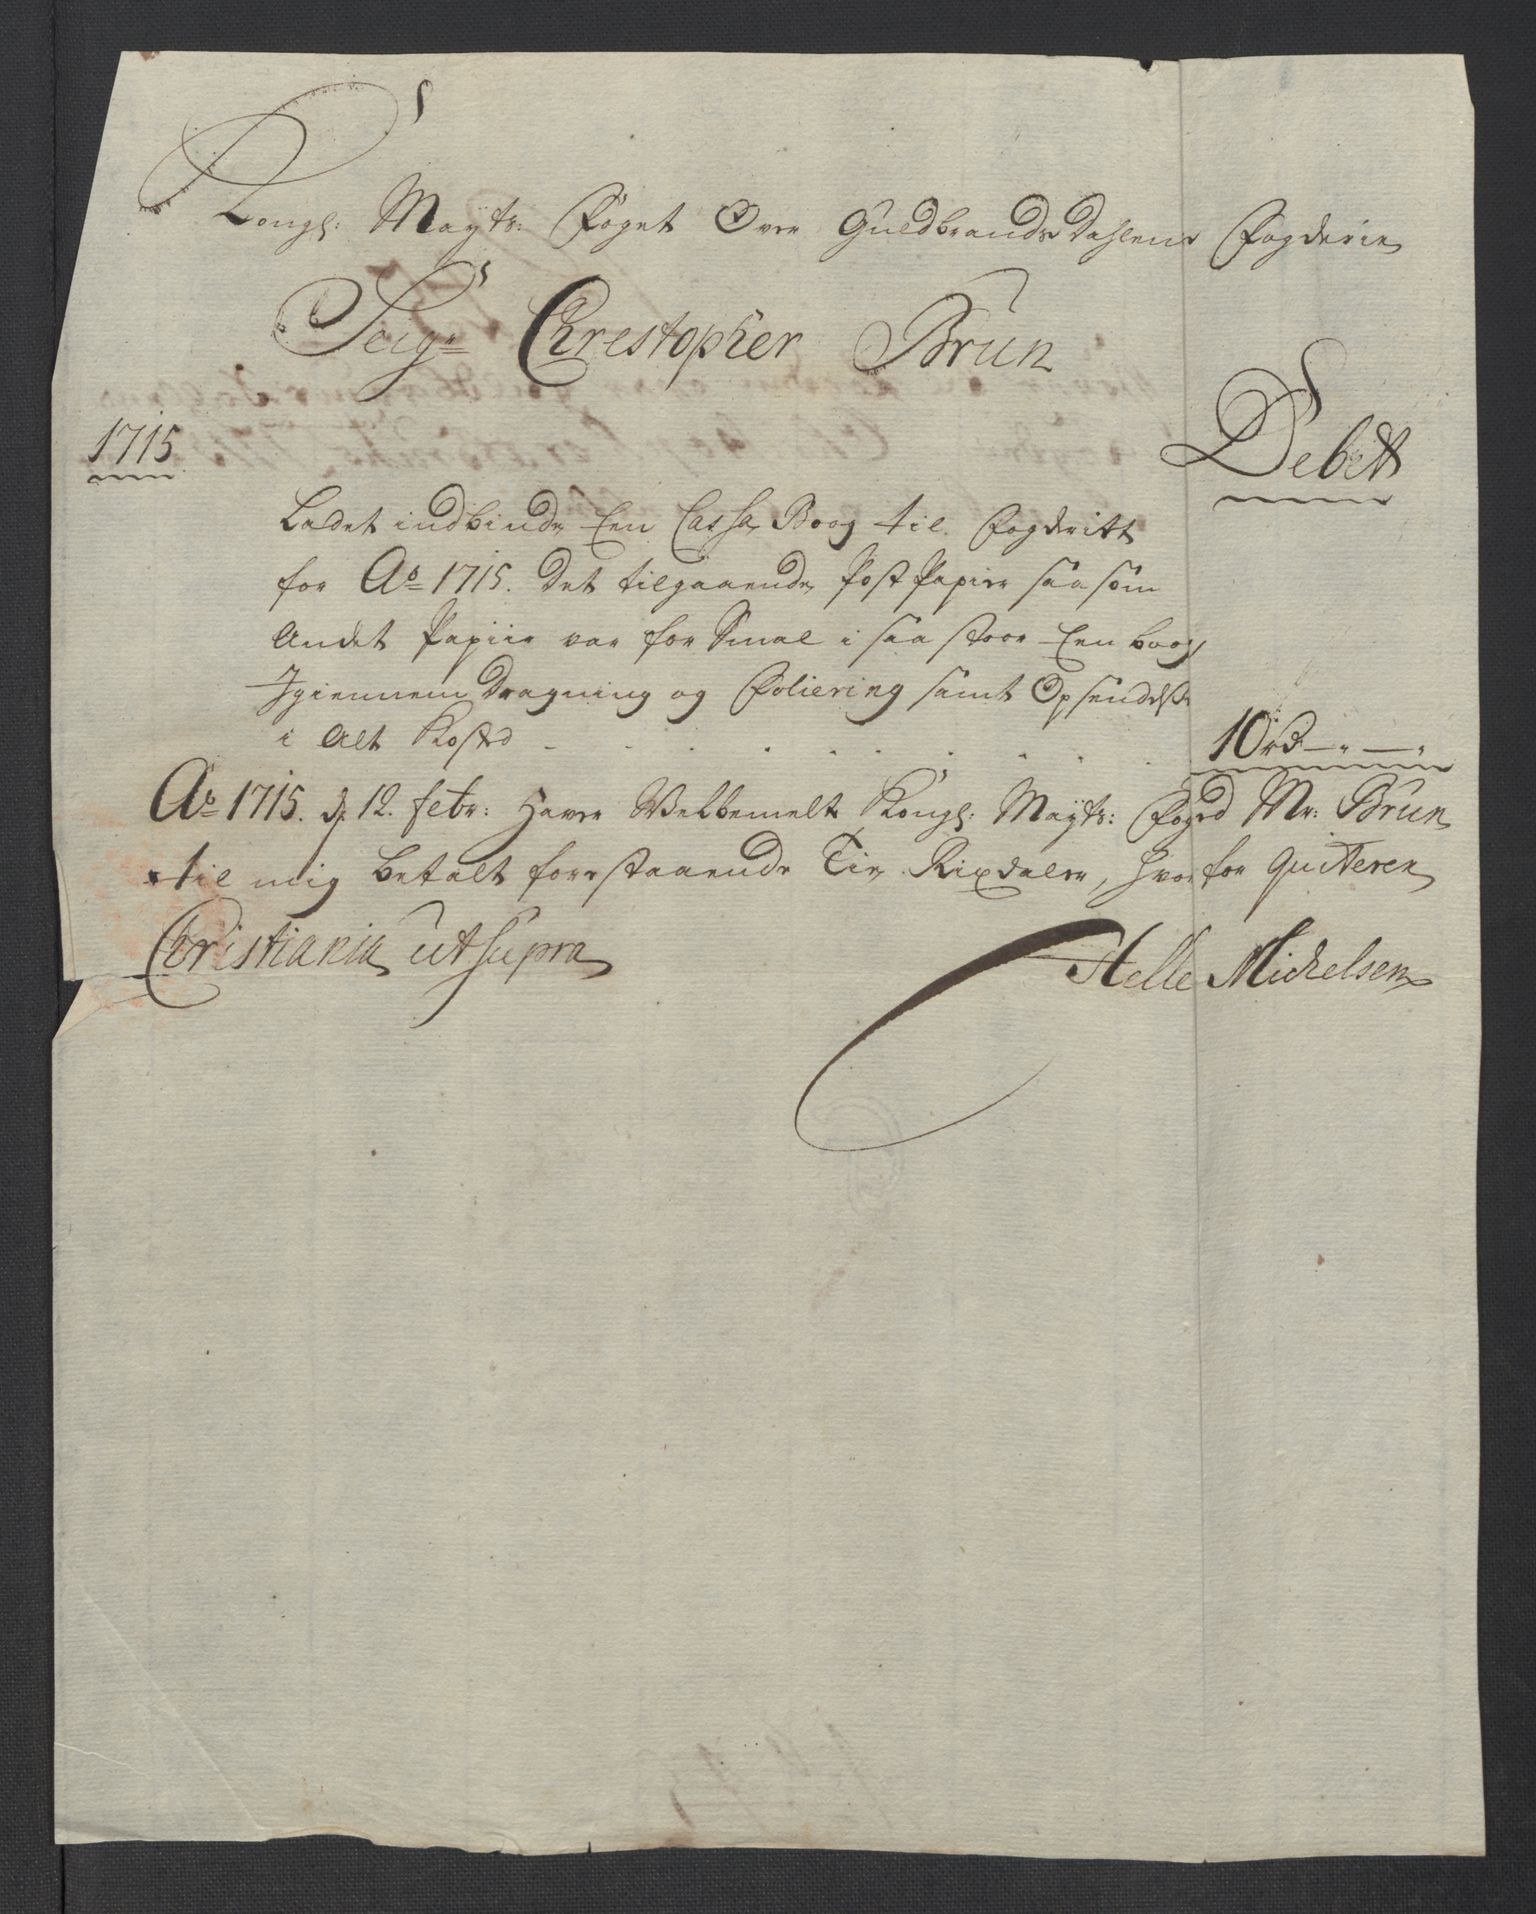 Kongl: Mayts: Foget Over Guldbrands Dahlens Fogderie
Seigr Chrestopher Brun
1715
Debett
Ladet indbinde Een Cassa Boog til Fogderitt
for Ao 1715. Det tilgaaende Post Papier saasom
Andet Papiir var for Smal i saa stoor Een boog
Igiennem Dragning og Foliering samt Opsendelse
i Alt Kosted - - - - - - - - - - 10 rd — " — "
Ao 1715. d. 12. febr: Haver Velbemelte Kongl: Mayts: Foged Mr: Brun
til mig betalt forestaaende Tie Rixdaler, hvorfor quiterer
Christiania ut supra
Helle Michelsen